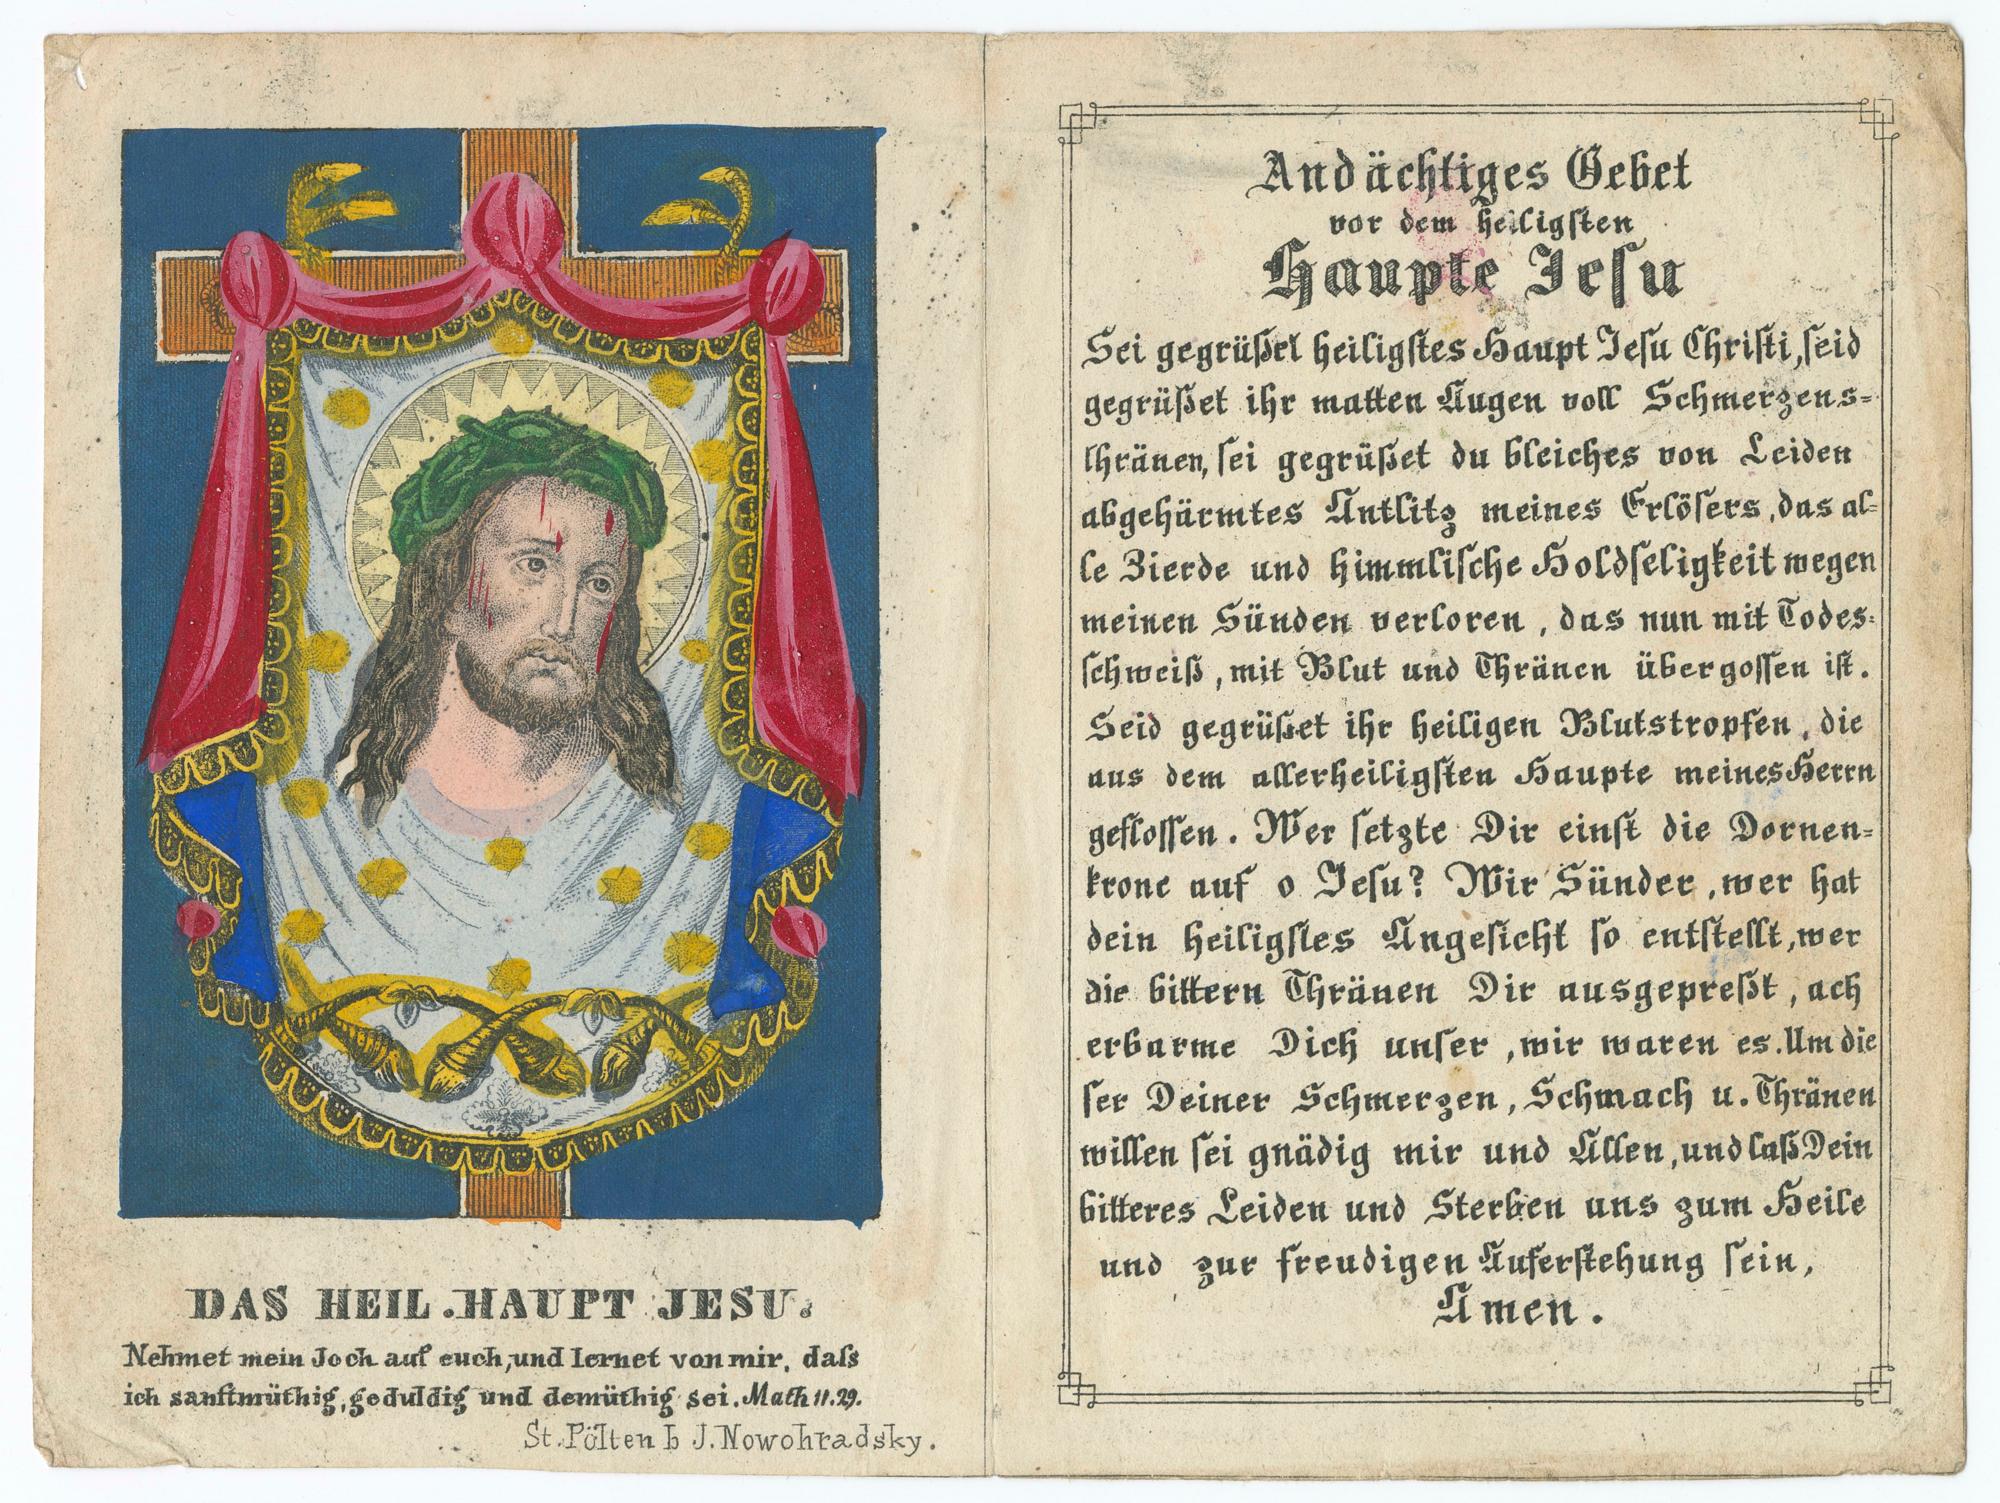 DAS HEIL. HAUPT JESU.
Nehmet mein Joch auf euch, und lernet von mir, daſs
ich sanftmüthig, geduldig und demüthig sei. Math 11. 29.
St. Pölten b J. Nowohradsky.
Andächtiges Gebet
vor dem heiligſten
Haupte Jeſu
Sei gegrüßet heiligſtes Haupt Jeſu Chriſti, ſeid
gegrüßet ihr matten Augen voll Schmerzens-
thränen, ſei gegrüßet du bleiches von Leiden
abgehärmtes Antlitz meines Erlöſers, das al-
le Zierde und himmliſche Holdſeligkeit wegen
meinen Sünden verloren, das nun mit Todes-
ſchweiß, mit Blut und Thränen übergoſſen iſt.
Seid gegrüßet ihr heiligen Blutstropfen, die
aus dem allerheiligſten Haupte meines Herrn
gefloſſen. Wer ſetzte Dir einſt die Dornen-
krone auf o Jeſu? Wir Sünder, wer hat
dein heiligſtes Angeſicht ſo entſtellt, wer
die bittern Thränen Dir ausgepreßt, ach
erbarme Dich unſer, wir waren es. Um die
ſer Deiner Schmerzen, Schmach u. Thränen
willen ſei gnädig mir und Allen, und laß Dein
bitteres Leiden und Sterben uns zum Heile
und zur freudigen Auferſtehung ſein,
Amen.